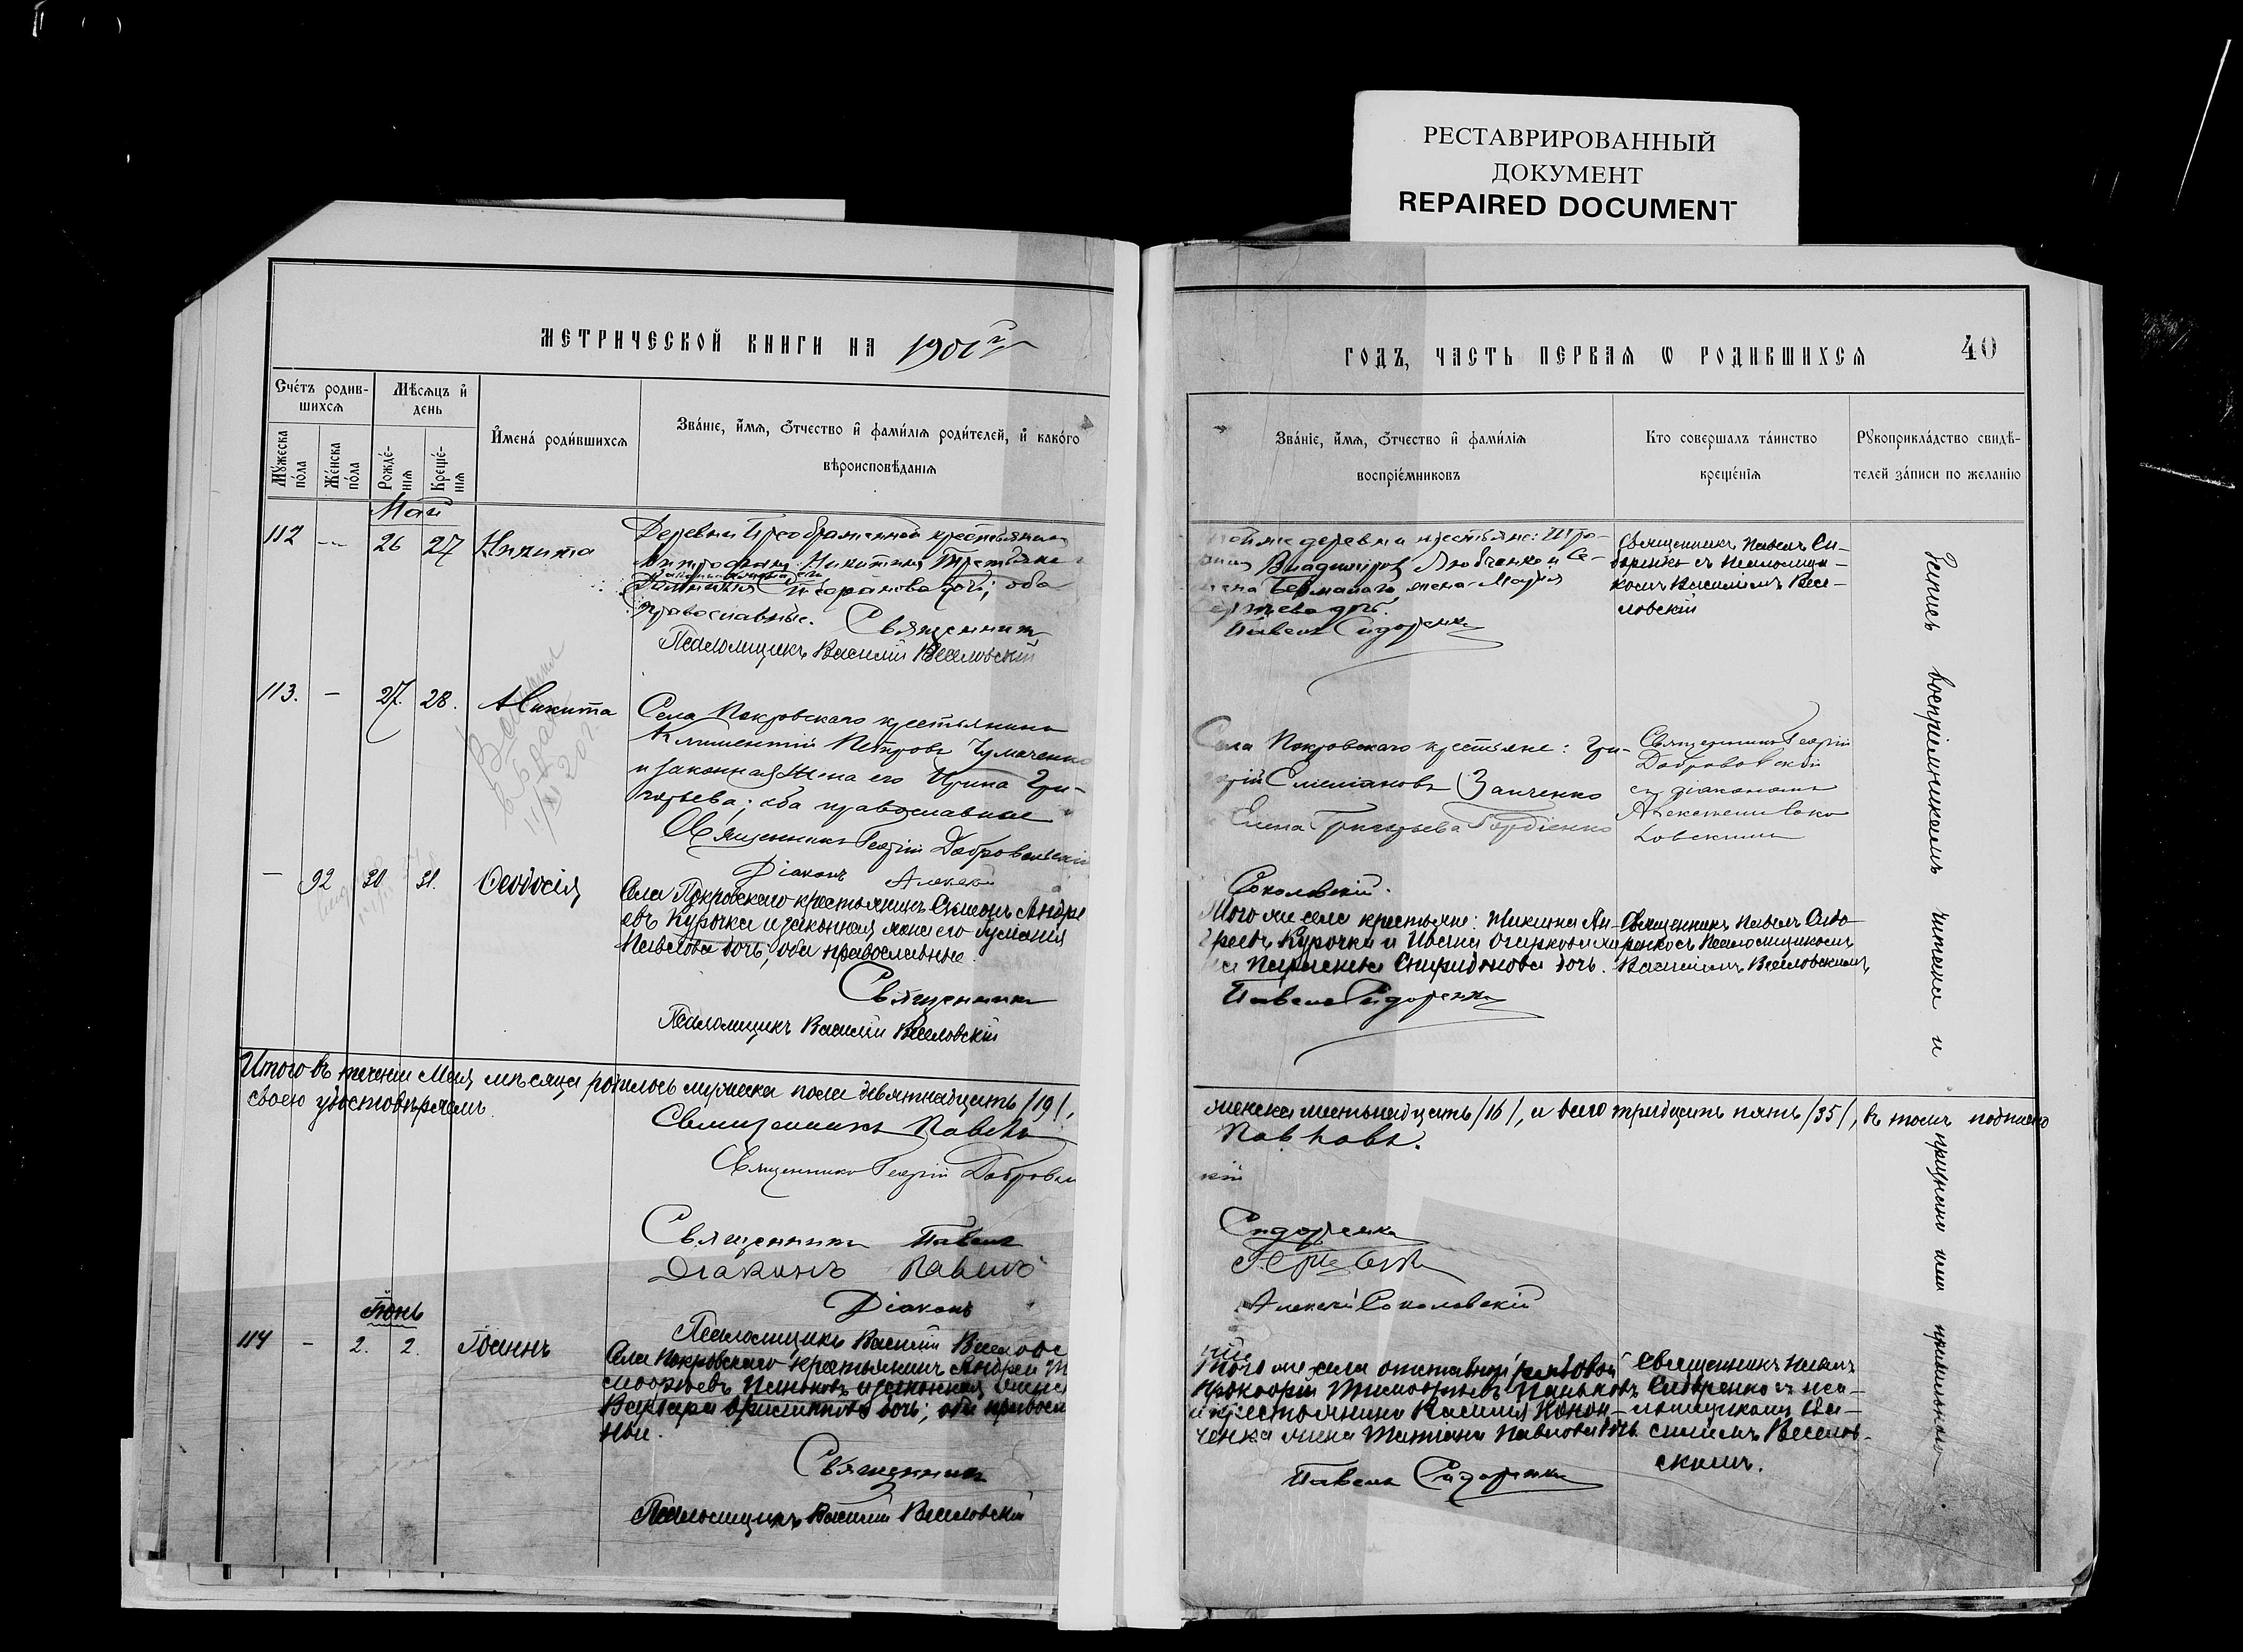 РЕСТАВРИРОВАННЫЙ
ДОКУМЕНТ
REPAIRED DOCUMENT
МЕТРИЧЕСКОЙ КНИГИ НА
ГОДЪ, ЧАСТЬ ПЕРВАѦ Ѡ РОДИВШИХСѦ
40
Счéтъ родив-
шихсѧ
Мѣсѧцъ и҆
день
Мꙋ́жеска
по́ла
Же́нска
по́ла
Рожде́-
нїѧ
Креще́-
нїѧ
И҆мена́ роди́вшихсѧ
Зва́нїе, и҆́мѧ, ѻ҆́тчество и҆ фами́лїѧ роди́телей, и҆ како́гѡ
вѣроисповѣ́данїѧ
Зва́нїе, и҆́мѧ, ѻ҆́тчество и҆ фами́лїѧ
воспрїе́мниковъ
Кто совершалъ та́инство
креще́нїѧ
Рꙋкоприкла́дство свидѣ́-
телей за́писи по жела́нїю
Май
112 — 26 27 Никита
Деревни Преображенной крестьянинъ
Митрофанъ Никитинъ Третьяк
дочь; оба
православные. Священникъ
Псаломщикъ Василій Веселовскій
той же деревни крестьяне: Тро-
Владиміровъ Любченко и Се-
жена Марія
дочь.
Павелъ Сидоренко
Священникъ Павелъ Си-
доренко съ псаломщи-
комъ Василіемъ Весе-
ловскій
113. — 27. 28. Никита
Села Покровскаго крестьянинъ
Климентій Петровъ Чумаченко
и законная жена его Ирина Гри-
горьева; оба православные
Священникъ Георгій Добровольскій
Діаконъ Алексѣй
Села Покровскаго крестьяне: Гри-
горій Заиченко
Елена Григорьева Гордіенко
Соколовскій.
Священникъ Георгій
Добровольскій
съ діакономъ
Алексѣемъ Соко
ловскимъ
— 92 30 31. Ѳеодосія
Села Покровскаго крестьянинъ Симеонъ Андре
евъ Курочка и законная жена его Іуліанія
Павлова дочь; оба православные.
Священникъ
Псаломщикъ Василій Веселовскій
Того же села крестьяне: Никита Ан-
дреевъ Курочка и Ивана
Спиридонова дочь.
Павелъ Сидоренко
Священникъ Павелъ Сидо-
ренко съ Псаломщикомъ
Василіемъ Веселовскимъ
Итого въ теченіи Мая мѣсяца родилось мужеска пола девятнадцать /19/,
женска шестьнадцать /16/, а всего тридцать пять /35/, въ томъ подписью
своею удостовѣряемъ.
Священникъ Павелъ
Павловъ.
Священникъ Георгій Добровольс
кій
Священникъ Павелъ
Сидоренко
Діаконъ Павелъ
Діаконъ
Алексѣй Соколовскій
Псаломщикъ Василій Веселовс
кій
Іюнь
114 — 2. 2. Іоаннъ
Села Покровскаго крестьянинъ Андрей Ти
моѳеевъ Паньковъ и законная жена
Варвара дочь; оба правосл
ные.
Священникъ
Псаломщикъ Василій Веселовскій
Того же села отставной рядовой
Прокофій Тимоѳеевъ Паньковъ
и крестьянина Василія Конон-
ченка жена Татіана Павлова дочь.
Павелъ Сидоренко
Священникъ Павелъ
Сидоренко съ пса-
ломщикомъ Ва-
силіемъ Веселов-
скимъ.
Запись воспріемникамъ читана и признана ими правильною.